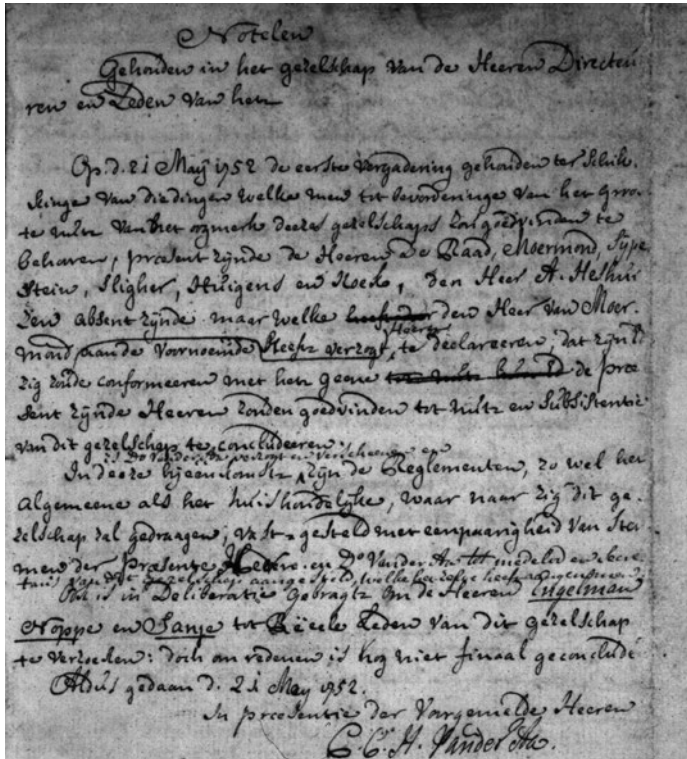 Notelen
Gehouden in het gezelschap van de Heeren Directeu
ren en Leden van het
Op d. 21 Maij 1752 de eerste vergadering gehouden ter schik-
kinge van die dingen welke men tot bevorderinge van het groo-
te nutte van het oogmerk deezes gezelschaps zou goedvinden te
behoren, præsent zijnde de Heeren de Raad, Moermond, Sype
stein, Sligher, Hiligens en Hoek, den Heer A. Heshui
zen absent zijnde maar welke den Heer van Moer-
mond aan de voornoemde Heeren heeft verzogt, te declareeren, dat zijn Ed
zig zoude conformeeren met het geene de præ
sent zijnde Heeren zouden goedvinden tot nutte en subsistentie
van dit gezelschap te concludeeren.
is Do van der Aa verzogt en verscheenen en
In deeze bijeenkomst zijn de Reglementen, zo wel het
algemeene als het huishoudelijke, waar naar zig dit ge-
zelschap zal gedraagen, vast-gesteld met eenpaarigheid van stem-
men der Præsente Heeren. en Do van der Aa tot medelid en secre
taris van dit gezelschap aangesteld, welke dezelve heeft aangenomen
Ook is in Deliberatie gebragt om de Heeren Engelman
Noppe en Sanje tot Leden van dit gezelschap
te verzoeken: doch om redenen is nog niet finaal geconclude
Aldus gedaan d. 21 May 1752.
In præsentie der Voorgemelde Heeren
C. C. H. Vander Aa.